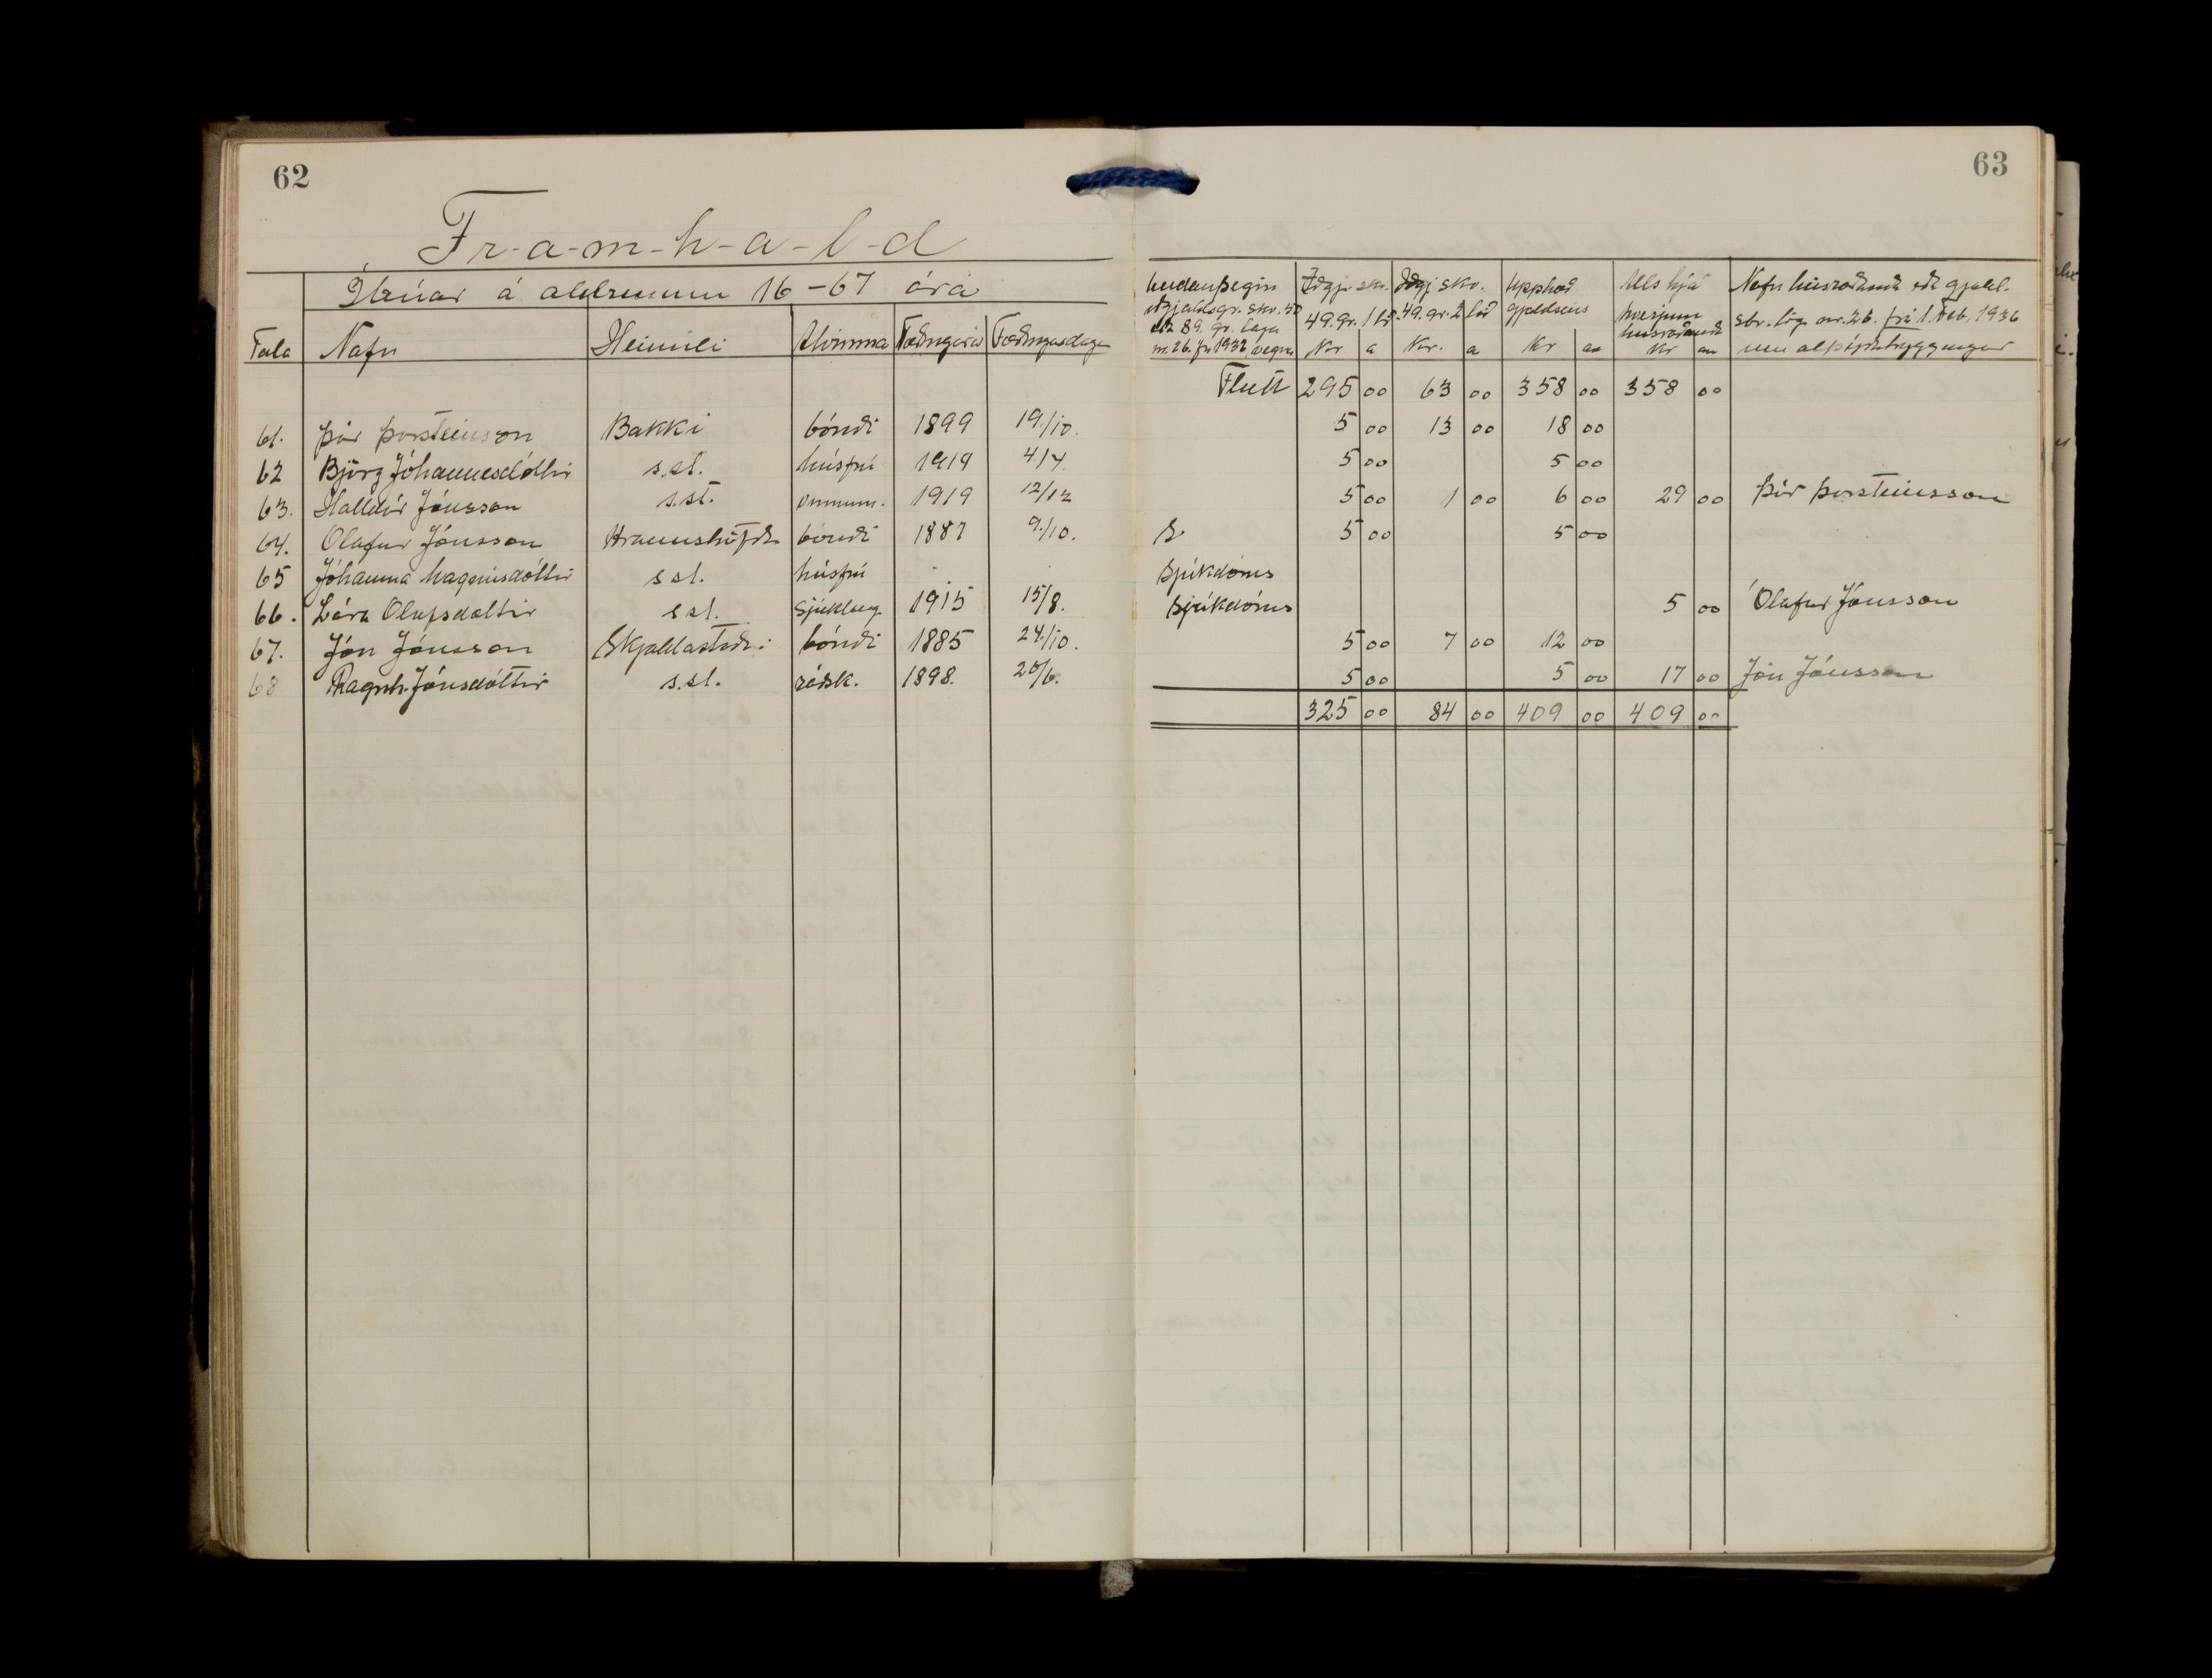 62
F-r-a-m-h-a-l-d
Íbúar á aldrinum 16-67 ára
Tala Nafn Heimili Atvinna Fæðingarár Fæðingardagur
61. Þór Þorsteinsson Bakki bóndi 1899 19/10.
62 Björg Jóhannesdóttir s.st. húsfrú 1914 4/4.
63. Halldór Jónsson s.st. vinnum. 1919 12/12
64. Olafur Jónsson bóndi 1887 9/10.
65 Jóhanna Magnúsdóttir s st. húsfrú
66. Lára Olafsdóttir s st. 1915 15/8.
67. Jón Jónsson Skjaldastöðu: bóndi 1885 24/10.
68 Ragnh. Jónsdóttir s.st. ráðsk. 1898. 20/6.
63
Undanþegin iðgjaldsgr. skv. 50 89. gr. laga nr. 26. frá 1932, vegna
Iðgj. skv. 49. gr. 1 lið Kr a
Iðgj skv. 49. gr. 2 lið Kr. a
Upphæð gjaldsins Kr au
Alls hjá hverjum húsráðanda Kr au
Nafn húsráðanda eða gjald. sbr. lög nr. 26. frá 1. Feb. 1936 um alþýðutryggingar
Flutt 295 00 63 00 358 00 358 00
5 00 13 00 18 00
5 00 5 00
5 00 1 00 6 00 29 00 Þór Þorsteinsson
5 00 5 00
Sjúkdóms
Sjúkdóms 5 00 Ólafur Jónsson
5 00 7 00 12 00
5 00 5 00 17 00 Jón Jónsson
325 00 84 00 409 00 409 00